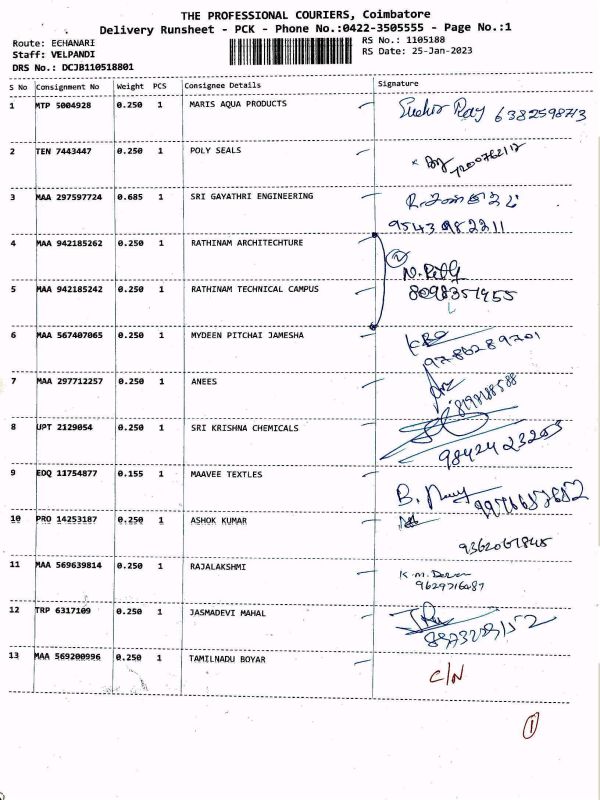 THE PROFESSIONAL COURIERS, Coimbatore
Delivery Runsheet - PCK - Phone No.:0422-3505555 - Page No.:1
Route: ECHANARI RS No.: 1105188
Staff: VELPANDI RS Date: 25-Jan-2023
DRS No.: DCJB110518801
S No Consignment No Weight PCS Consignee Details Signature
1 MTP 5004928 0.250 1 MARIS AQUA PRODUCTS 6382598713
2 TEN 7443447 0.250 1 POLY SEALS
3 MAA 297597724 0.685 1 SRI GAYATHRI ENGINEERING
9543982211
4 MAA 942185262 0.250 1 RATHINAM ARCHITECHTURE
5 MAA 942185242 0.250 1 RATHINAM TECHNICAL CAMPUS
8098351455
6 MAA 567407065 0.250 1 MYDEEN PITCHAI JAMESHA
9786289701
7 MAA 297712257 0.250 1 ANEES
8 UPT 2129054 0.250 1 SRI KRISHNA CHEMICALS
9842423203
9 EDQ 11754877 0.155 1 MAAVEE TEXTLES
10 PRO 14253187 0.250 1 ASHOK KUMAR
9362061845
11 MAA 569639814 0.250 1 RAJALAKSHMI
9629716487
12 TRP 6317109 0.250 1 JASMADEVI MAHAL
13 MAA 569200996 0.250 1 TAMILNADU BOYAR
C/N
1